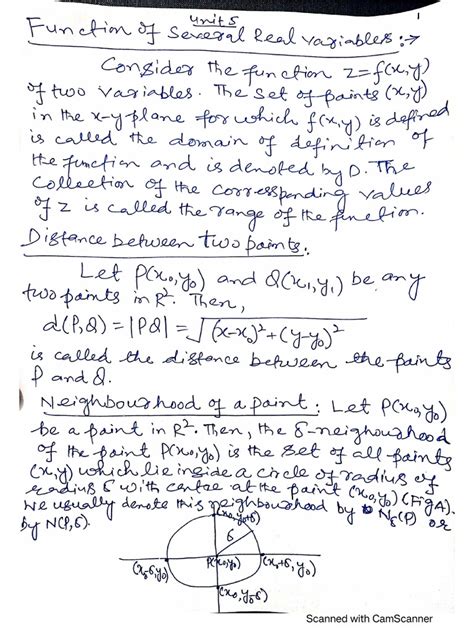 Unit 5
1
Function of Several Real variables :→
Consider the function z=f(x,y)
of two variables. The set of points (x,y)
in the x-y plane for which f(x,y) is defined
is called the domain of definition of
the function and is denoted by D. The
collection of the corresponding values
of z is called the range of the function.
Distance between two points.
Let P(x₀,y₀) and Q(x₁,y₁) be any
two points in R². Then,
d(P,Q) = |PQ| = √(x-x₀)²+(y-y₀)²
is called the distance between the points
P and Q.
Neighbourhood of a point : Let P(x₀,y₀)
be a point in R². Then, the δ-neighourhood
of the point P(x₀,y₀) is the set of all points
(x,y) which lie inside a circle of radius of
radius δ with centre at the point (x₀,y₀) (Fig A).
We usually denote this neighbourhood by Nδ(P) or
by N(P,δ).
(x₀,y₀+δ)
δ
(x₀-δ,y₀)
P(x₀,y₀)
(x₀+δ,y₀)
(x₀,y₀-δ)
Scanned with CamScanner